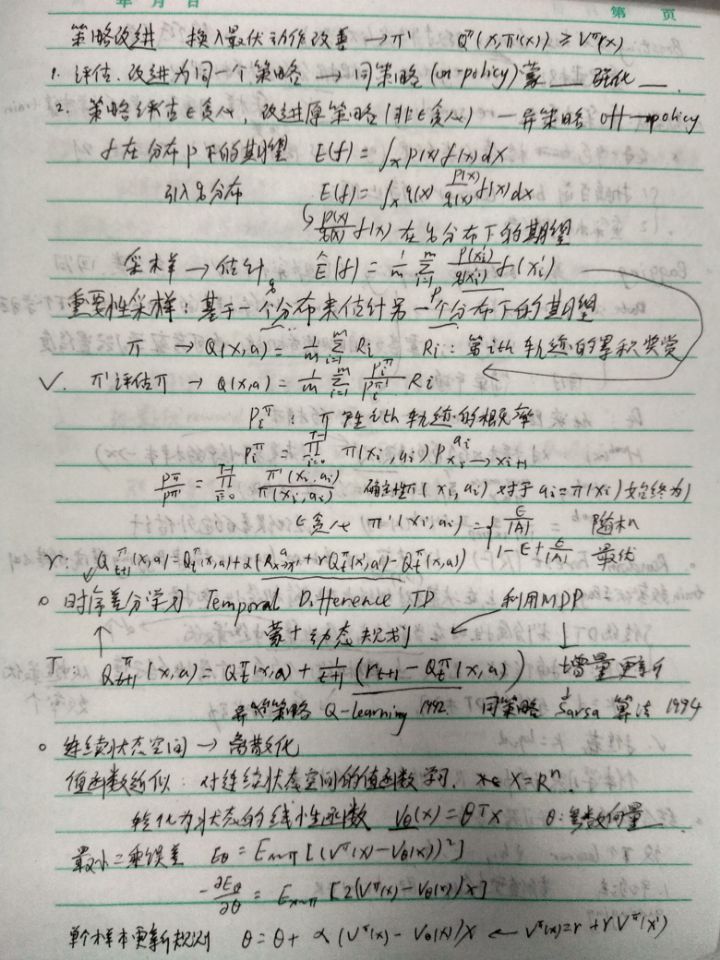 年 月 日 第 页
策略改进 换入最优动作改善 → π' Qπ(x,π'(x)) ≥ Vπ(x)
1. 评估.改进为同一个策略 → 同策略 (on-policy) 蒙__强化__
2. 策略评估ε贪心, 改进原策略(非ε贪心) — 异策略 off-policy
f 在分布 p 下的期望 E(f) = ∫x p(x) f(x) dx
引入q分布 E(f) = ∫x q(x) p(x)/q(x) f(x) dx
p(x)/q(x) f(x) 在q分布下的期望
采样 → 估计 Ê(f) = 1/m Σ_{i=1}^m p(xi')/q(xi') f(xi')
重要性采样: 基于一个分布来估计另一个分布下的期望
q p
π → Q(x,a) = 1/m Σ_{i=1}^m Ri Ri: 第ith轨迹的累积奖赏
✓. π'评估π → Q(x,a) = 1/m Σ_{i=1}^m Pi^π/Pi^π' Ri
Pi^π: π产生ith轨迹的概率
Pi^π = Π_{i=0}^{T-1} π(xi,ai) P_{xi→xi+1}^{ai}
Pπ/Pπ' = Π_{i=0}^{T-1} π'(xi,ai)/π(xi,ai) 确定性π(xi,ai) 对于ai=π(xi)始终为1
ε贪心 π'(xi,ai) = { ε/|A| 随机
1-ε+ε/|A| 最优
r: Q_{t+1}^π(x,a) = Q_t^π(x,a) + α(R_{x→x'}^a + rQ_t^π(x',a') - Q_t^π(x,a))
○ 时序差分学习 Temporal Difference, TD 利用MDP
蒙+动态规划
T: Q_{t+1}^π(x,a) = Q_t^π(x,a) + 1/(t+1) (r_{t+1} - Q_t^π(x,a)) 增量更新
异策略 Q-learning 1992. 同策略 Sarsa 算法 1994
○ 连续状态空间 → 离散化
值函数近似: 对连续状态空间的值函数学习. X=R^n.
转化为状态的线性函数 Vθ(x) = θ^T x θ:参数向量
最小二乘误差 Eθ = E_{x~π} [(Vπ(x) - Vθ(x))^2]
-∂Eθ/∂θ = E_{x~π} [2(Vπ(x) - Vθ(x)) x]
单个样本更新规则 θ = θ + α (Vπ(x) - Vθ(x)) x ← Vπ(x) = r + rVπ(x')